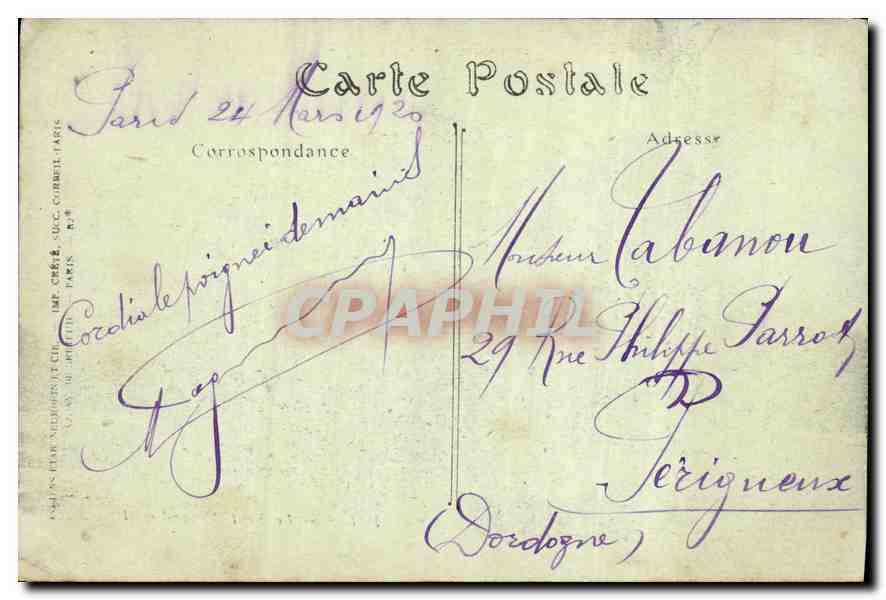 Carte Postale
Paris 24 Mars 1920
Correspondance
Adresse
Cordiale poignée de mains
Monsieur Tabanou
29 Rue Philippe Parrot
Périgueux
(Dordogne)
CPAPHIL
IMP. CRÉTÉ, SUCC. CORBEIL-PARIS